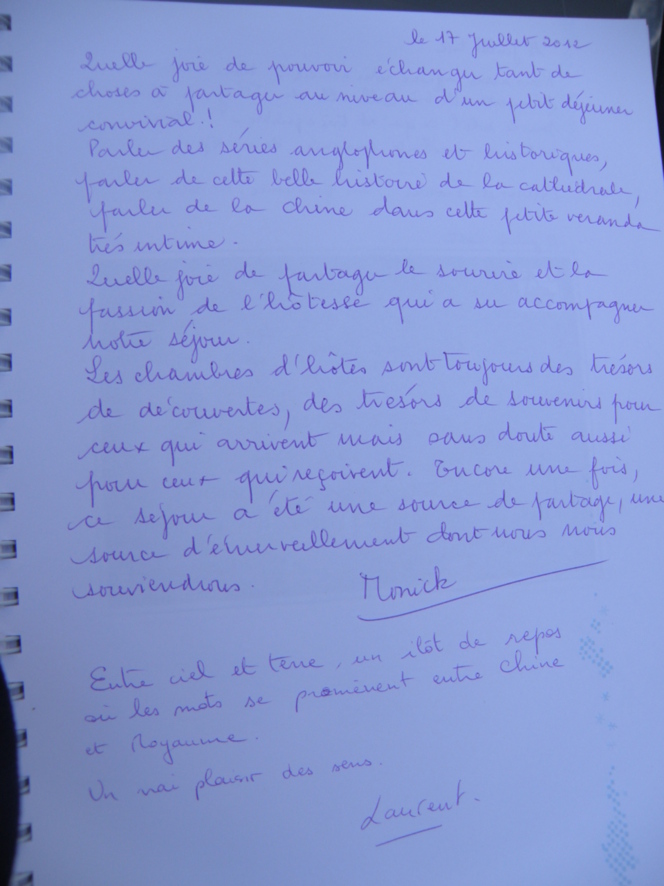 le 17 Juillet 2012
Quelle joie de pouvoir échanger tant de
choses à partager au niveau d'un petit déjeuner
convivial !
Parler des séries anglophones et historiques,
parler de cette belle histoire de la cathédrale,
parler de la Chine dans cette petite veranda
très intime.
Quelle joie de partager le sourire et la
passion de l'hôtesse qui a su accompagner
notre séjour.
Les chambres d'hôtes sont toujours des trésors
de découvertes, des trésors de souvenirs pour
ceux qui arrivent mais sans doute aussi
pour ceux qui reçoivent. Encore une fois,
ce séjour a été une source de partage, une
source d'émerveillement dont nous nous
souviendrons.
Monick
Entre ciel et terre, un ilôt de repos
où les mots se promènent entre Chine
et Royaume.
Un vrai plaisir des sens.
Laurent.